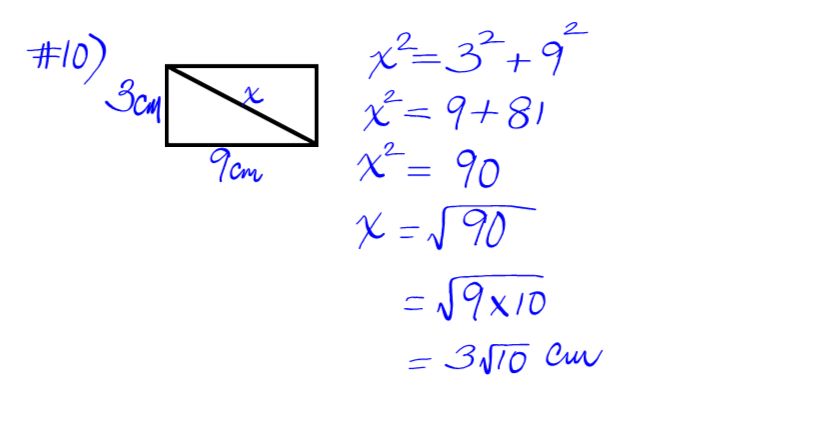 #10)
3cm
x
9cm
x² = 3² + 9²
x² = 9 + 81
x² = 90
x = √90
= √9×10
= 3√10 cm